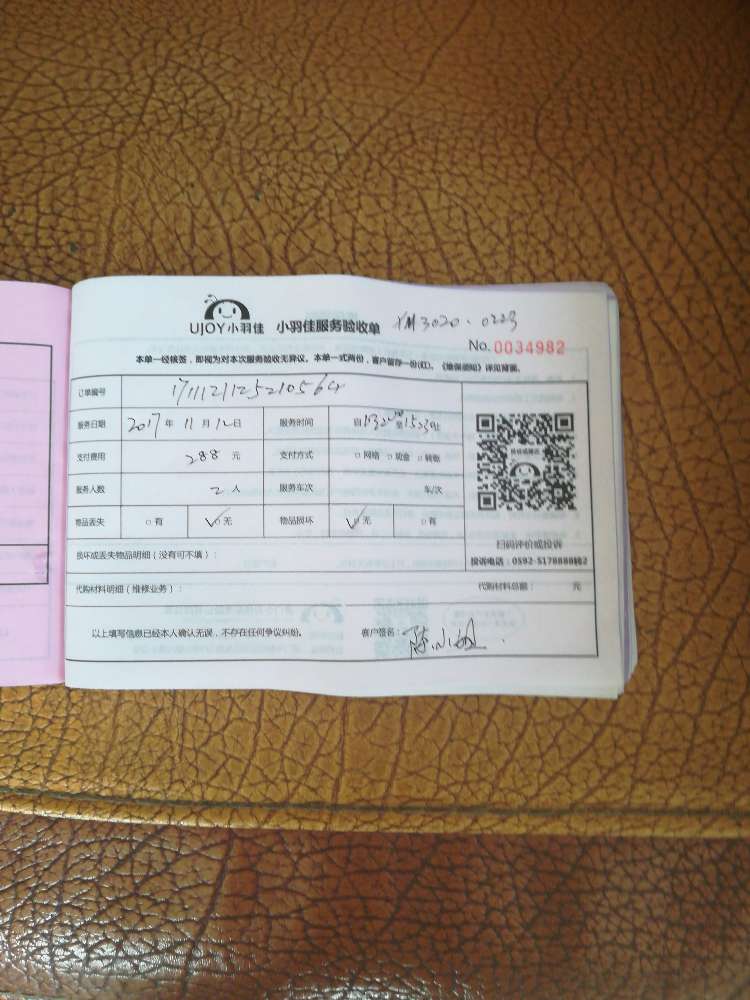 UJOY小羽佳 小羽佳服务验收单 XM3020.0223
No.0034982
本单一经核签，即视为对本次服务验收无异议。本单一式两份，客户留存一份(红)。《维保须知》详见背面。
订单编号 171112112521056
服务日期 2017年 11月 12日 服务时间 自 至 1523止
支付费用 288 元 支付方式 □网络 □现金 □转账
服务人数 2 人 服务车次 车/次
物品丢失 □有 ✓□无 物品损坏 ✓□无 □有
扫码评价或投诉
损坏或丢失物品明细（没有可不填）：
投诉电话：0592-5178888转2
代购材料明细（维修业务）： 代购材料总额： 元
以上填写信息已经本人确认无误，不存在任何争议纠纷。 客户签名： 陈小姐